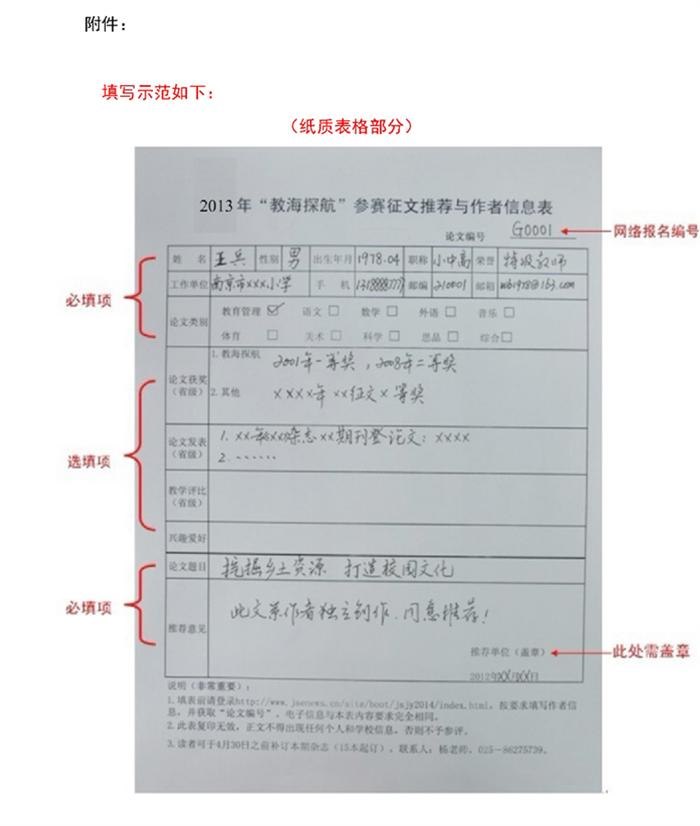 附件：
填写示范如下：
（纸质表格部分）
2013年“教海探航”参赛征文推荐与作者信息表
论文编号 G0001 网络报名编号
姓 名 王兵 性别 男 出生年月 1978.04 职称 小中高 荣誉 特级教师
工作单位 南京市xxx小学 手 机 邮编 210001 邮箱 wb1978@163.com
必填项
论文类别 教育管理 ☑ 语文 □ 数学 □ 外语 □ 音乐 □
体育 □ 美术 □ 科学 □ 思品 □ 综合 □
论文获奖（省级） 1.教海探航 2001年一等奖，2008年二等奖
2.其他 xxxx年xx征文x等奖
选填项
论文发表（省级） 1. xx年xx杂志xx期刊登论文：xxxx
2. ······
教学评比（省级）
兴趣爱好
论文题目 挖掘乡土资源 打造校园文化
必填项
推荐意见 此文系作者独立创作，同意推荐！
推荐单位（盖章） 此处需盖章
2012年xx月xx日
说明（非常重要）：
1.填表前请登录http://www.jsenews.cn/site/boot/jsjy2014/index.html，按要求填写作者信
息，并获取“论文编号”。电子信息与本表内容要求完全相同。
2.此表复印无效，正文不得出现任何个人和学校信息，否则不予参评。
3.读者可于4月30日之前补订本期杂志（15本起订），联系人：杨老师，025-86275739。